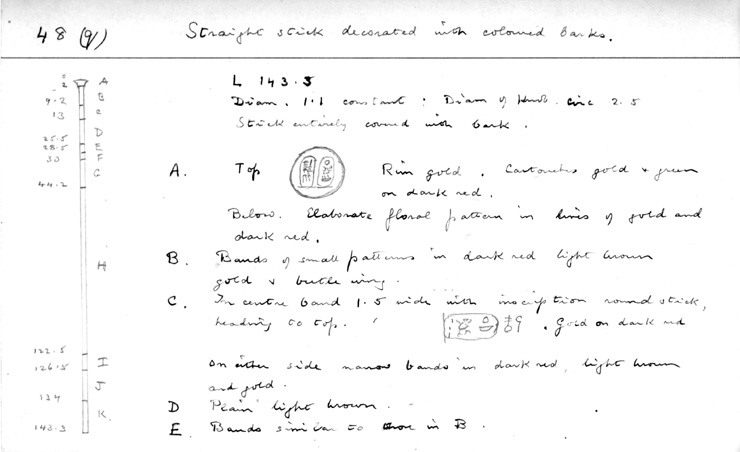 48 (q) Straight stick decorated with coloured barks.
L 143.5
Diam. 1.1 constant : Diam of knob. circ 2.5
Stick entirely covered with bark.
A. Top Rim gold. Cartouches gold & green
on dark red.
Below. Elaborate floral pattern in lines of gold and
dark red.
B. Bands of small patterns in dark red light brown
gold & beetle wing.
C. In centre band 1.5 wide with inscription round stick,
heading to top. . Gold on dark red
On either side narrow bands in dark red, light brown
and gold.
D Plain light brown.
E. Bands similar to those in B.
2 A
9.2 B
13 C
D
25.5
28.5 E
30 F
G
44.2
H
122.5
126.5 I
J
134
K.
143.3